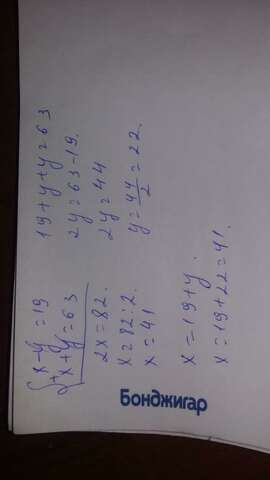 { x-y=19
+ x+y=63
2x=82.
x=82:2.
x=41
19+y+y=63
2y=63-19.
2y=44
y=44/2=22.
x=19+y.
x=19+22=41.
Бонджигар